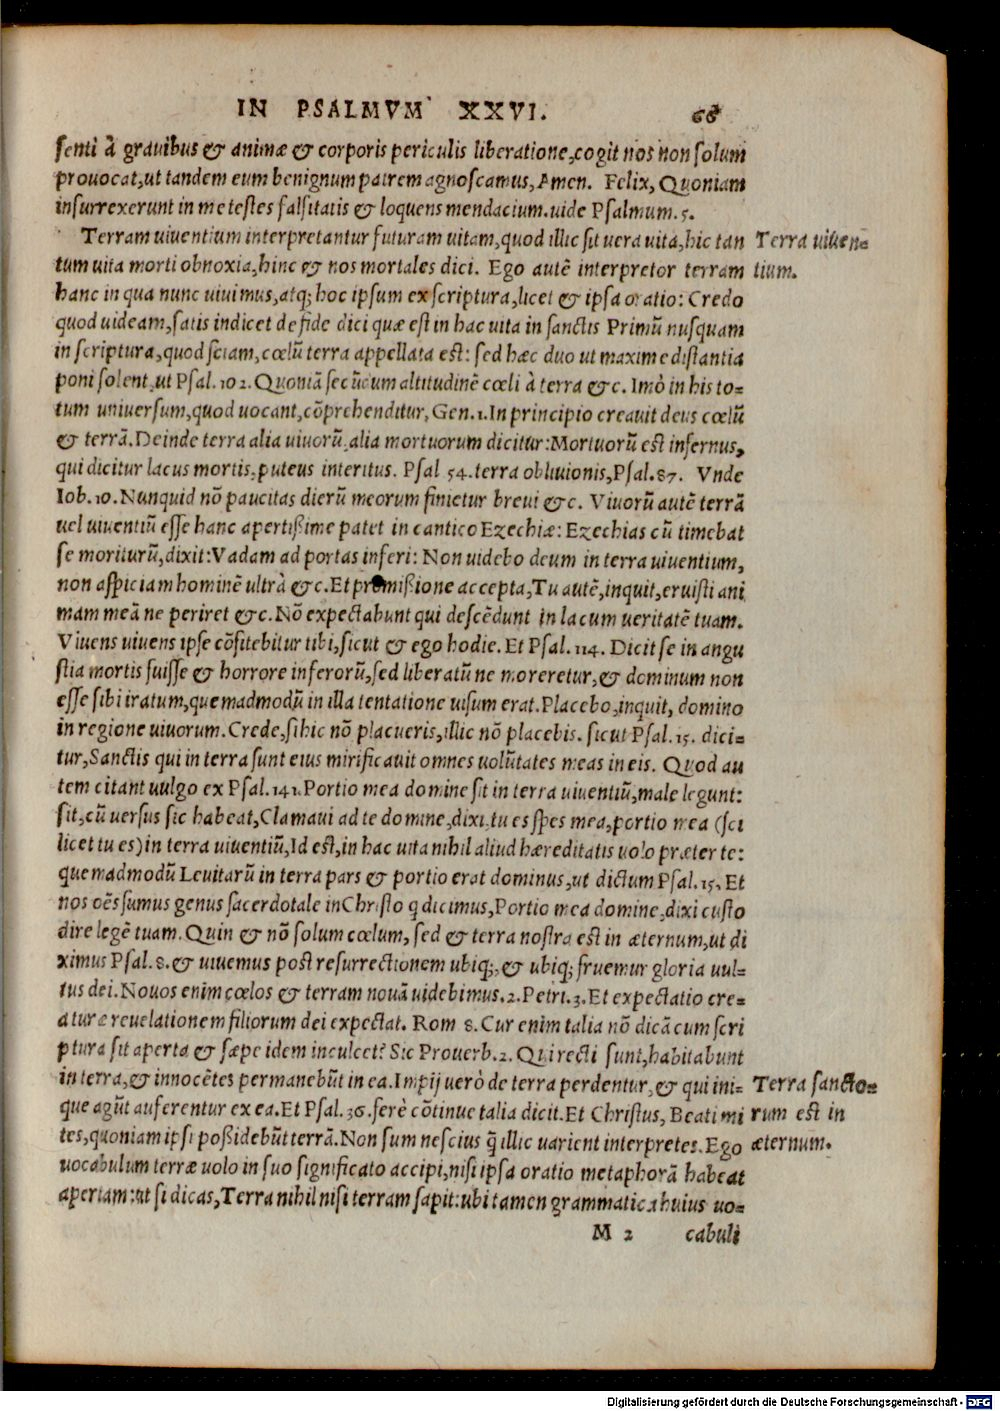 IN PSALMVM XXVI. 66
senti à grauibus & animæ & corporis periculis liberatione, cogit nos non solum
prouocat, ut tandem eum benignum patrem agnoscamus, Amen. Felix, Quoniam
insurrexerunt in me testes falsitatis & loquens mendacium. uide Psalmum. 5.
Terram uiuentium interpretantur futuram uitam, quod illic sit uera uita, hic tan
Terra uiuen=
tum uita morti obnoxia, hinc & nos mortales dici. Ego autē interpretor terram
tium.
hanc in qua nunc uiuimus, atq; hoc ipsum ex scriptura, licet & ipsa oratio: Credo
quod uideam, satis indicet de fide dici quæ est in hac uita in sanctis Primū nusquam
in scriptura, quod sciam, cœlū terra appellata est: sed hæc duo ut maxime distantia
poni solent, ut Psal. 102. Quoniā secūdum altitudinē cœli à terra &c. Imò in his to=
tum uniuersum, quod uocant, cōprehenditur, Gen. 1. In principio creauit deus cœlū
& terrā. Deinde terra alia uiuorū, alia mortuorum dicitur: Mortuorū est infernus,
qui dicitur lacus mortis, puteus interitus. Psal 54. terra obliuionis, Psal. 87. Vnde
Iob. 10. Nunquid nō paucitas dierū meorum finietur breui &c. Viuorū autē terrā
uel uiuentiū esse hanc apertißime patet in cantico Ezechiæ: Ezechias cū timebat
se moriturū, dixit: Vadam ad portas inferi: Non uidebo deum in terra uiuentium,
non aspiciam hominē ultrà &c. Et promißione accepta, Tu autē, inquit, eruisti ani
mam meā ne periret &c. Nō expectabunt qui descēdunt in lacum ueritatē tuam.
Viuens uiuens ipse cōfitebitur tibi, sicut & ego hodie. Et Psal. 114. Dicit se in angu
stia mortis fuisse & horrore inferorū, sed liberatū ne moreretur, & dominum non
esse sibi iratum, quemadmodū in illa tentatione uisum erat. Placebo, inquit, domino
in regione uiuorum. Crede, si hic nō placueris, illic nō placebis. sicut Psal. 15. dici=
tur, Sanctis qui in terra sunt eius mirificauit omnes uolūtates meas in eis. Quod au
tem citant uulgo ex Psal. 141. Portio mea domine sit in terra uiuentiū, male legunt:
sit, cū uersus sic habeat, Clamaui ad te domine, dixi, tu es spes mea, portio mea (sci
licet tu es) in terra uiuentiū, Id est, in hac uita nihil aliud hæreditatis uolo præter te:
quemadmodū Leuitarū in terra pars & portio erat dominus, ut dictum Psal. 15. Et
nos oēs sumus genus sacerdotale in Christo q dicimus, Portio mea domine, dixi custo
dire legē tuam. Quin & nō solum cœlum, sed & terra nostra est in æternum, ut di
ximus Psal. 8. & uiuemus post resurrectionem ubiq;, & ubiq; fruemur gloria uul=
tus dei. Nouos enim cœlos & terram nouā uidebimus. 2. Petri. 3. Et expectatio cre=
aturæ reuelationem filiorum dei expectat. Rom 8. Cur enim talia nō dicā cum scri
ptura sit aperta & sæpe idem inculcet? Sic Prouerb. 2. Qui recti sunt, habitabunt
in terra, & innocētes permanebūt in ea. Impij uerò de terra perdentur, & qui ini=
Terra sancto=
que agūt auferentur ex ea. Et Psal. 36. ferè cōtinue talia dicit. Et Christus, Beati mi
rum est in
tes, quoniam ipsi poßidebūt terrā. Non sum nescius q̄ illic uarient interpretes. Ego
æternum.
uocabulum terræ uolo in suo significato accipi, nisi ipsa oratio metaphorā habeat
apertam: ut si dicas, Terra nihil nisi terram sapit: ubi tamen grammatica huius uo=
M 2 cabuli
Digitalisierung gefördert durch die Deutsche Forschungsgemeinschaft - DFG